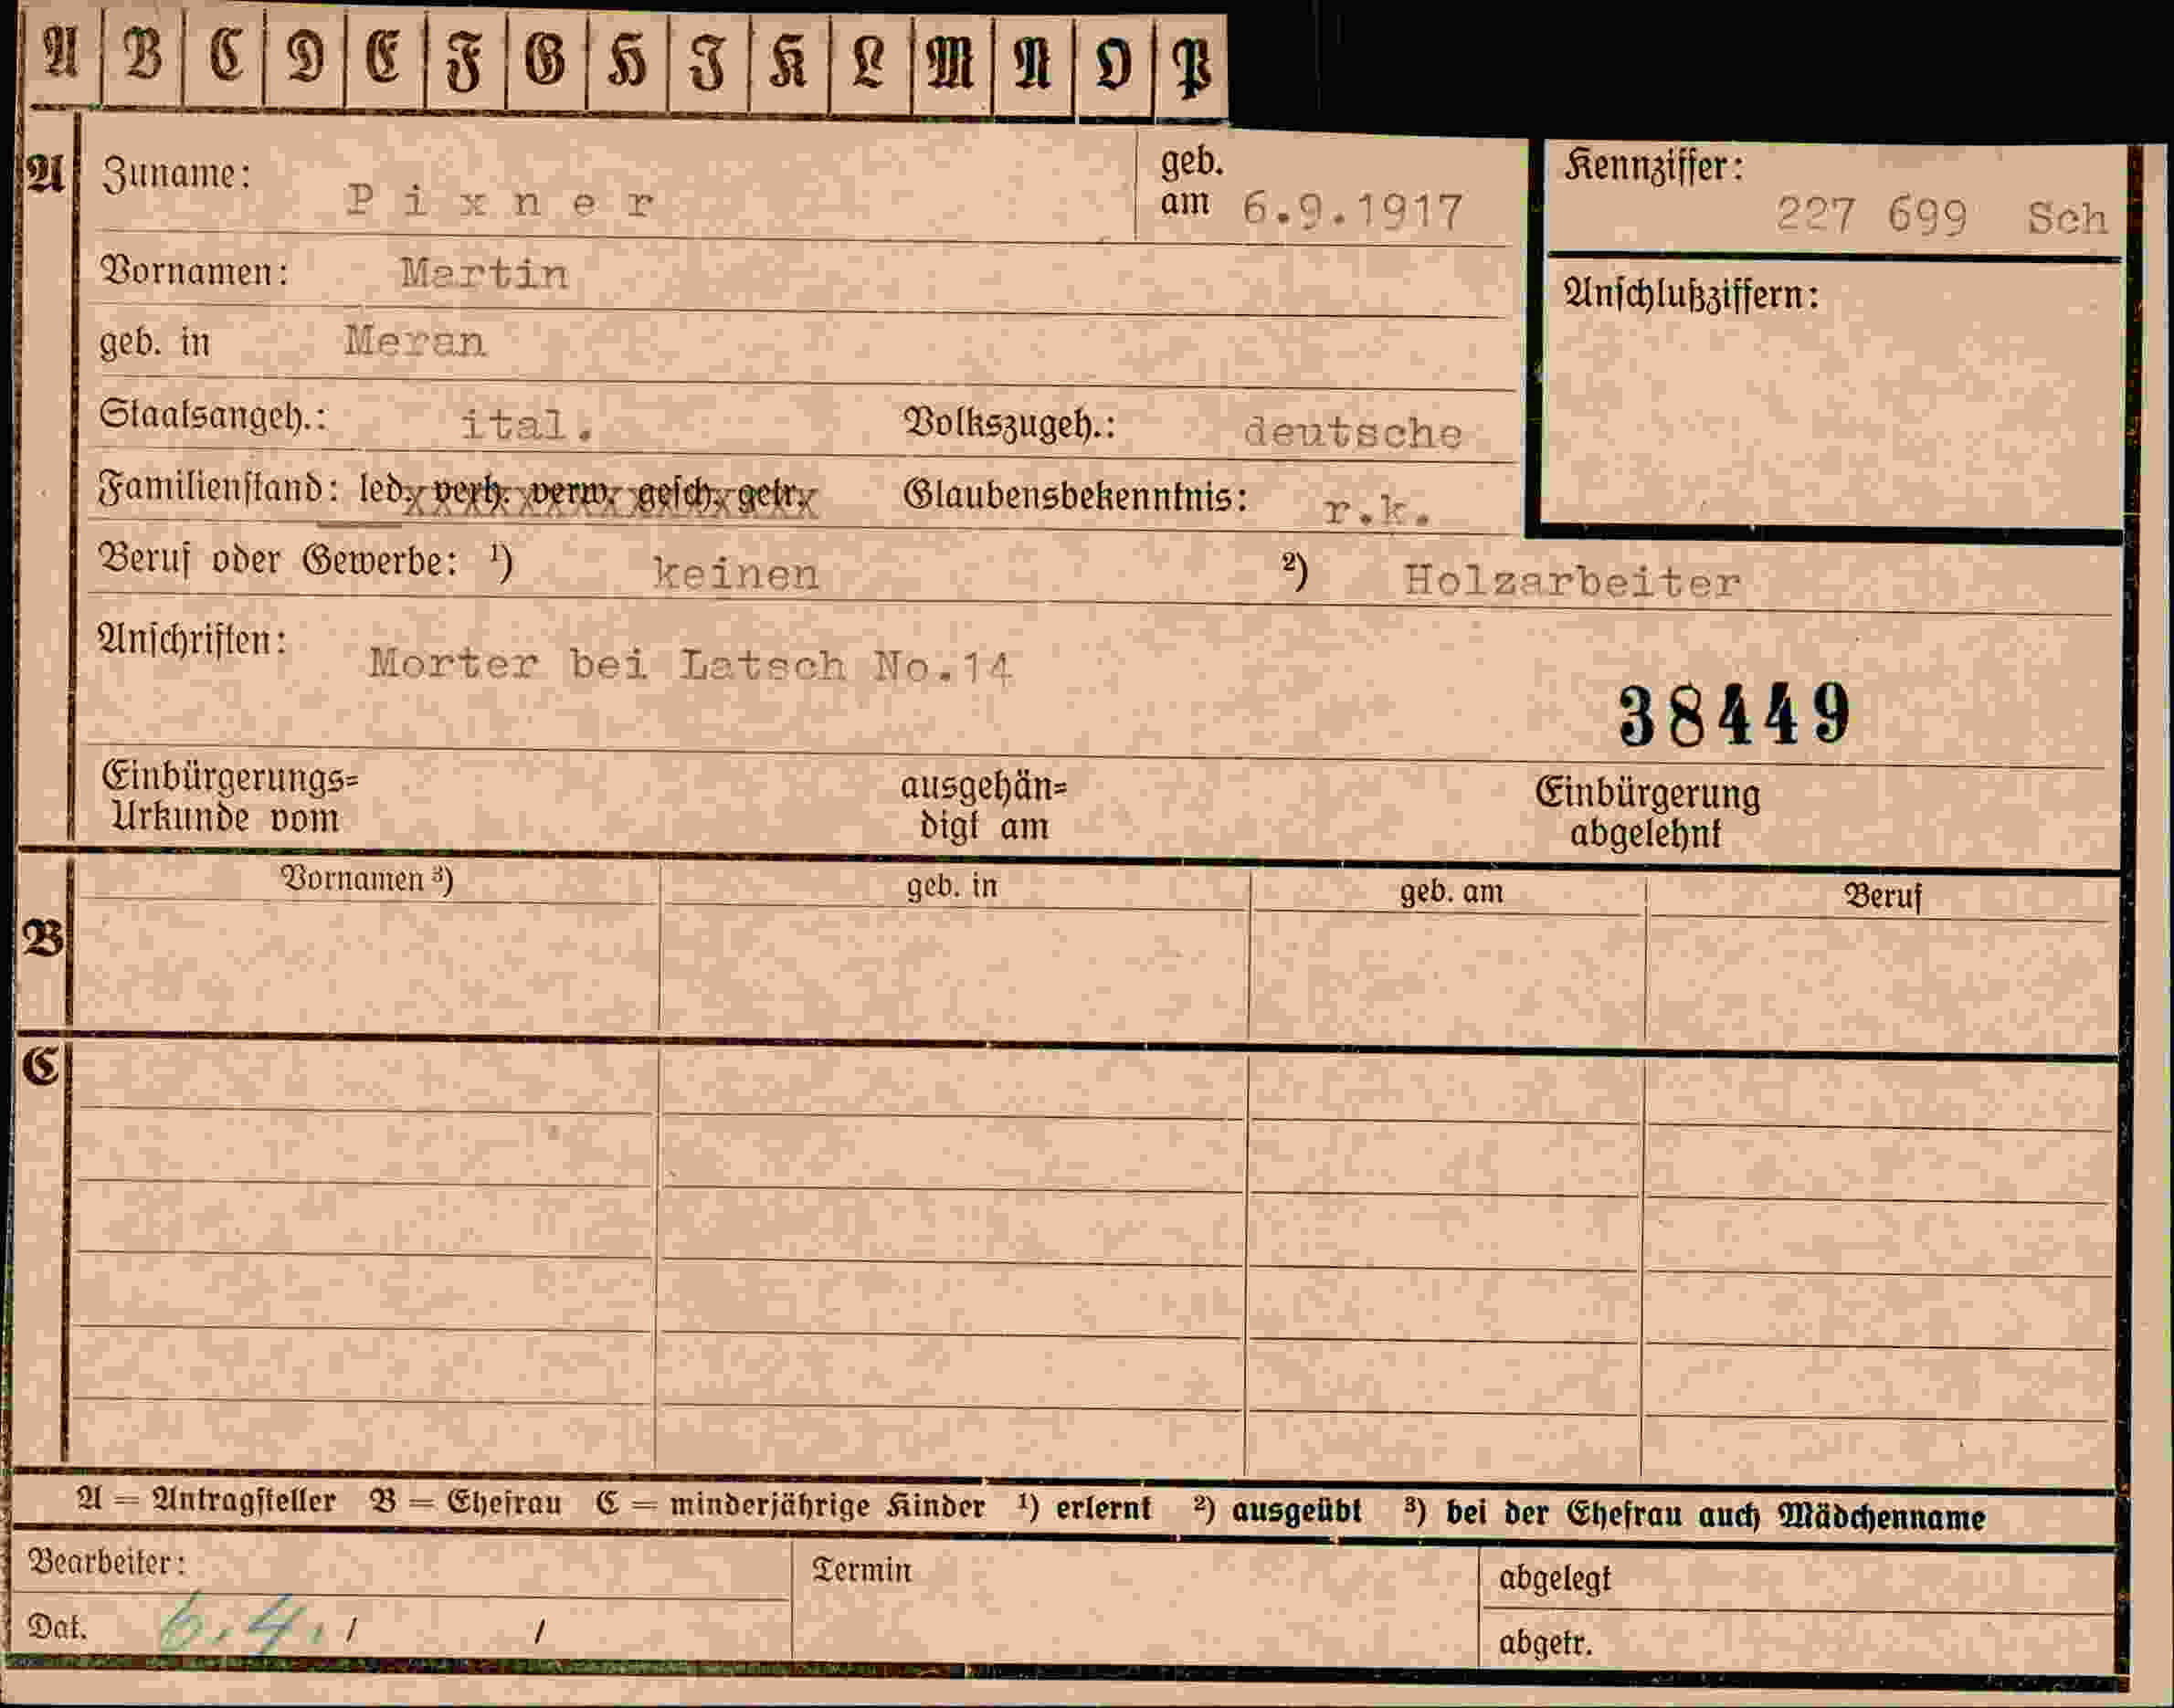 A B C D E F G H J K L M N O P
A Zuname: Pixner geb. am 6.9.1917 Kennziffer: 227 699 Sch
Vornamen: Martin Anschlußziffern:
geb. in Meran
Staatsangeh.: ital. Volkszugeh.: deutsche
Familienstand: led. verh. verw. gesch. getr. Glaubensbekenntnis: r.k.
Beruf oder Gewerbe: ¹) keinen ²) Holzarbeiter
Anschriften: Morter bei Latsch No.14
38449
Einbürgerungs= ausgehän= Einbürgerung
Urkunde vom digt am abgelehnt
B Vornamen ³) geb. in geb. am Beruf
C
A = Antragsteller B = Ehefrau C = minderjährige Kinder ¹) erlernt ²) ausgeübt ³) bei der Ehefrau auch Mädchenname
Bearbeiter: Termin abgelegt
Dat. 6.4. / / abgetr.